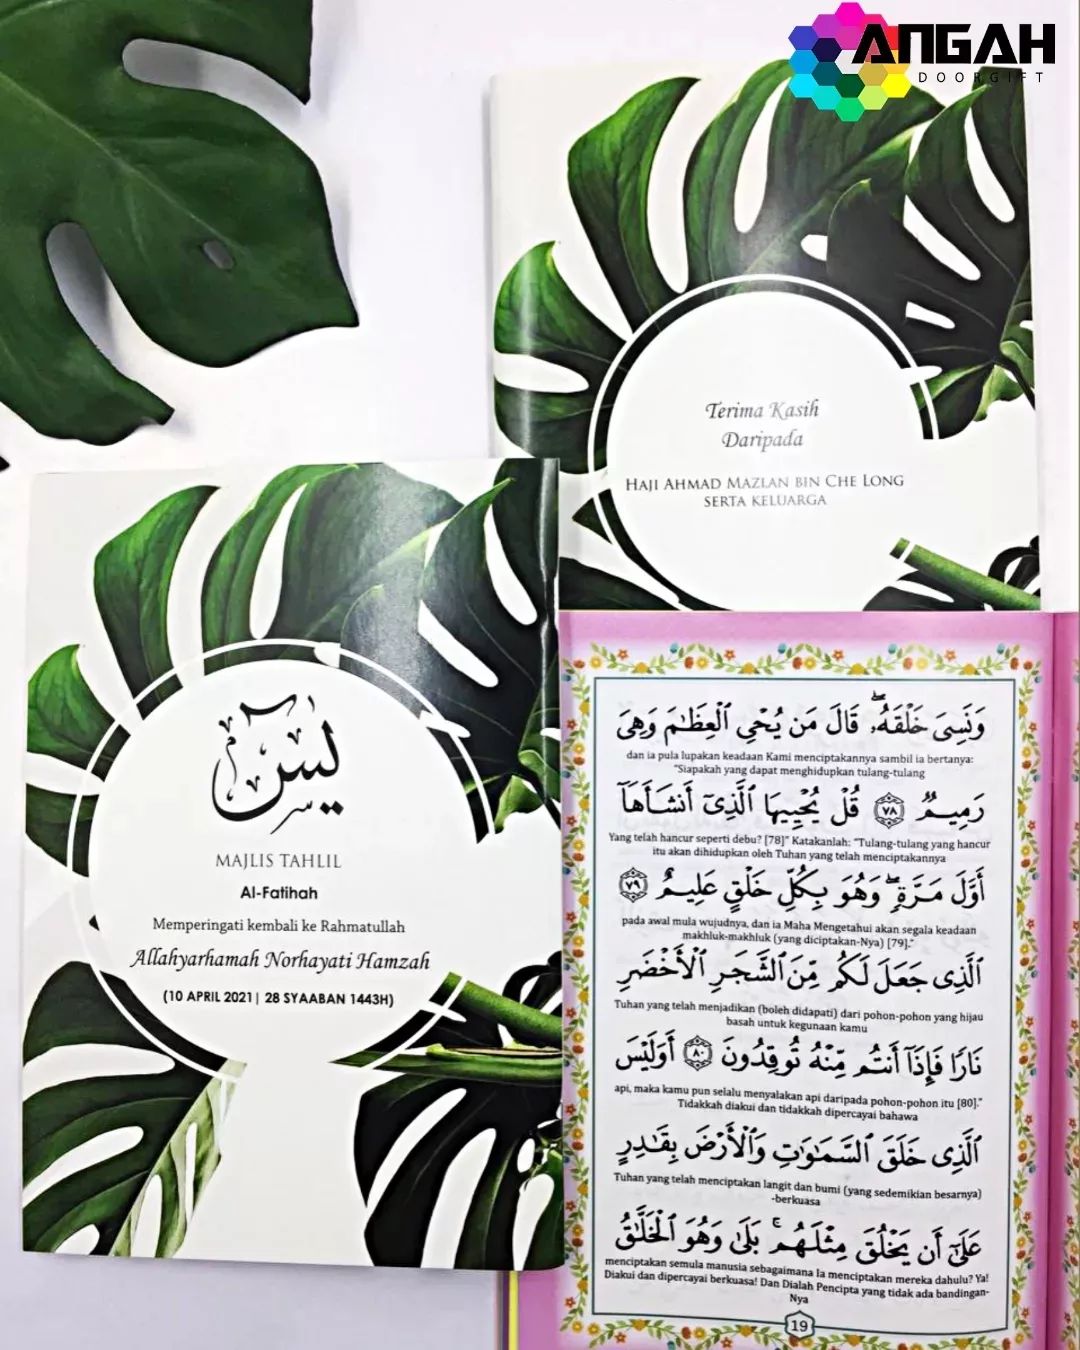 ANGAH
DOORGIFT
Terima Kasih
Daripada
HAJI AHMAD MAZLAN BIN CHE LONG
SERTA KELUARGA
يس
MAJLIS TAHLIL
Al-Fatihah
Memperingati kembali ke Rahmatullah
Allahyarhamah Norhayati Hamzah
(10 APRIL 2021| 28 SYAABAN 1443H)
وَنَسِىَ خَلْقَهُۥ ۖ قَالَ مَن يُحْىِ ٱلْعِظَـٰمَ وَهِىَ
dan ia pula lupakan keadaan Kami menciptakannya sambil ia bertanya:
"Siapakah yang dapat menghidupkan tulang-tulang
رَمِيمٌ ٧٨ قُلْ يُحْيِيهَا ٱلَّذِىٓ أَنشَأَهَآ
Yang telah hancur seperti debu? [78]" Katakanlah: "Tulang-tulang yang hancur
itu akan dihidupkan oleh Tuhan yang telah menciptakannya
أَوَّلَ مَرَّةٍ ۖ وَهُوَ بِكُلِّ خَلْقٍ عَلِيمٌ ٧٩
pada awal mula wujudnya, dan ia Maha Mengetahui akan segala keadaan
makhluk-makhluk (yang diciptakan-Nya) [79]."
ٱلَّذِى جَعَلَ لَكُم مِّنَ ٱلشَّجَرِ ٱلْأَخْضَرِ
Tuhan yang telah menjadikan (boleh didapati) dari pohon-pohon yang hijau
basah untuk kegunaan kamu
نَارًا فَإِذَآ أَنتُم مِّنْهُ تُوقِدُونَ ٨٠ أَوَلَيْسَ
api, maka kamu pun selalu menyalakan api daripada pohon-pohon itu [80]."
Tidakkah diakui dan tidakkah dipercayai bahawa
ٱلَّذِى خَلَقَ ٱلسَّمَـٰوَٰتِ وَٱلْأَرْضَ بِقَـٰدِرٍ
Tuhan yang telah menciptakan langit dan bumi (yang sedemikian besarnya)
-berkuasa
عَلَىٰٓ أَن يَخْلُقَ مِثْلَهُم ۚ بَلَىٰ وَهُوَ ٱلْخَلَّـٰقُ
menciptakan semula manusia sebagaimana Ia menciptakan mereka dahulu? Ya!
Diakui dan dipercayai berkuasa! Dan Dialah Pencipta yang tidak ada bandingan-
Nya
19